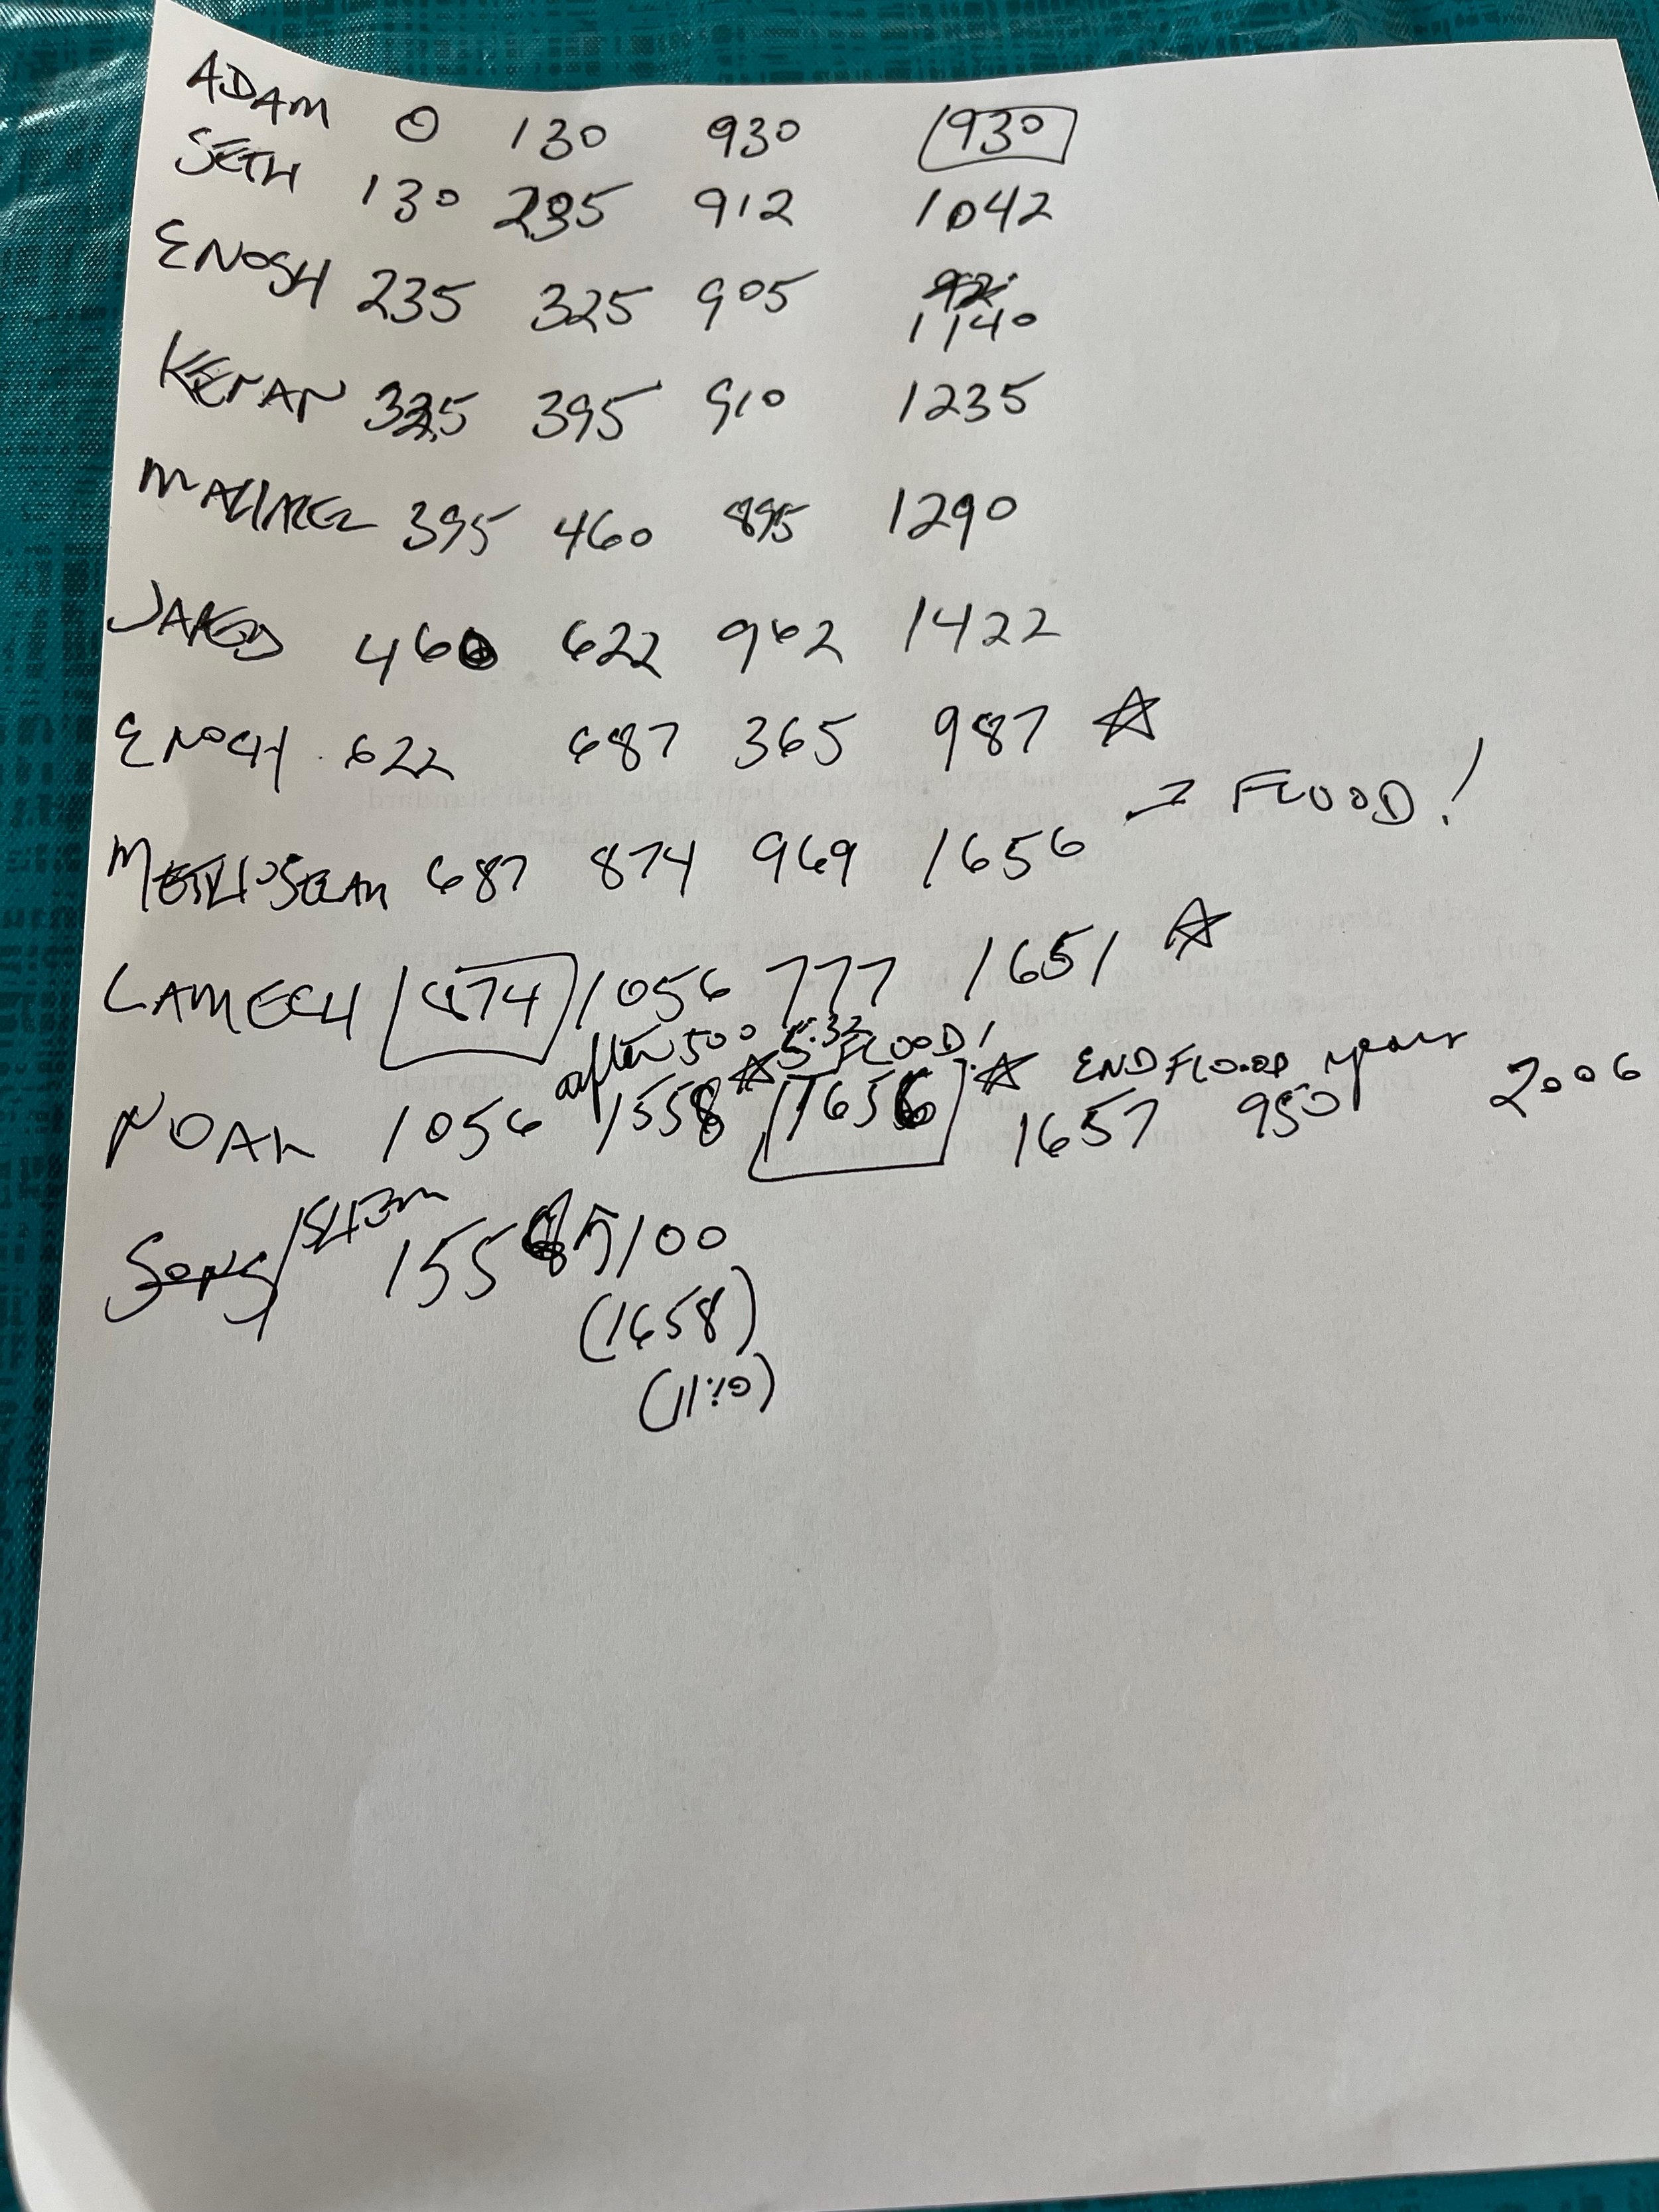 ADAM 0 130 930 930
SETH 130 235 912 1042
ENOSH 235 325 905 1140
KENAN 325 395 910 1235
MAHALEL 395 460 895 1290
JARED 460 622 962 1422
ENOCH 622 687 365 987 ☆
METHUSELAH 687 874 969 1656 → FLOOD!
LAMECH 874 1056 777 1651 ☆
after 500 5:32 FLOOD! END FLOOD years
NOAH 1056 1558 ☆ 1656 ☆ 1657 950 2006
SONS/SHEM 1558 100
(1658)
(11:10)